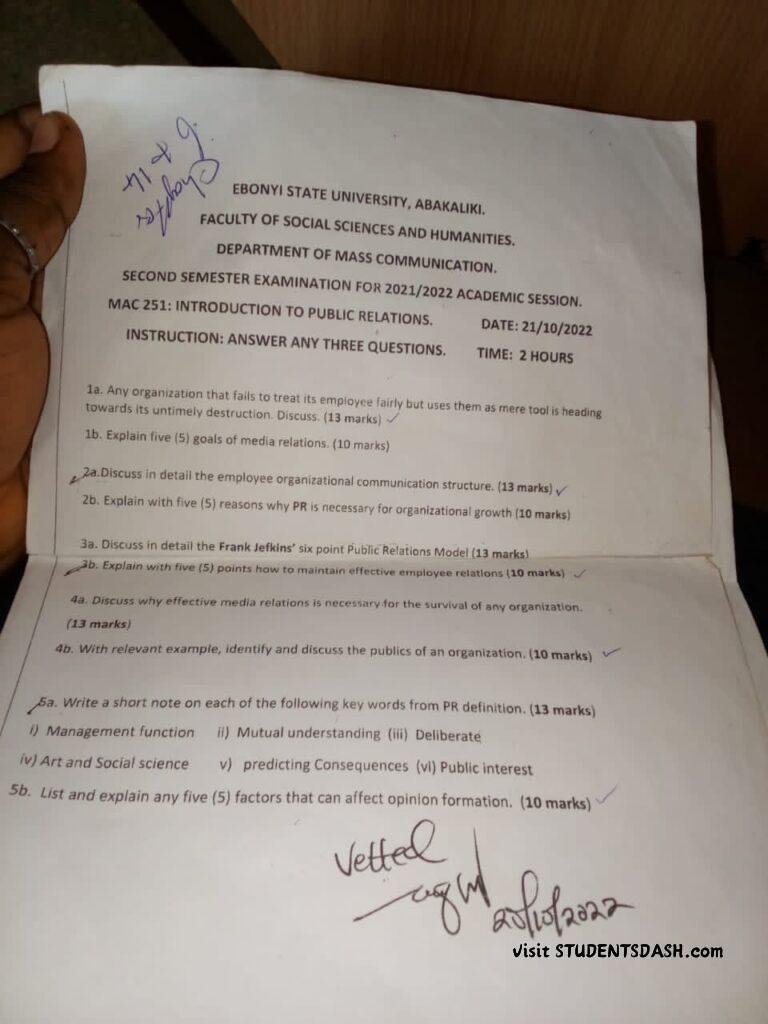 Chapter
6 & 14
EBONYI STATE UNIVERSITY, ABAKALIKI.
FACULTY OF SOCIAL SCIENCES AND HUMANITIES.
DEPARTMENT OF MASS COMMUNICATION.
SECOND SEMESTER EXAMINATION FOR 2021/2022 ACADEMIC SESSION.
MAC 251: INTRODUCTION TO PUBLIC RELATIONS. DATE: 21/10/2022
INSTRUCTION: ANSWER ANY THREE QUESTIONS. TIME: 2 HOURS
1a. Any organization that fails to treat its employee fairly but uses them as mere tool is heading
towards its untimely destruction. Discuss. (13 marks)
1b. Explain five (5) goals of media relations. (10 marks)
2a.Discuss in detail the employee organizational communication structure. (13 marks)
2b. Explain with five (5) reasons why PR is necessary for organizational growth (10 marks)
3a. Discuss in detail the Frank Jefkins' six point Public Relations Model (13 marks)
3b. Explain with five (5) points how to maintain effective employee relations (10 marks)
4a. Discuss why effective media relations is necessary for the survival of any organization.
(13 marks)
4b. With relevant example, identify and discuss the publics of an organization. (10 marks)
5a. Write a short note on each of the following key words from PR definition. (13 marks)
i) Management function ii) Mutual understanding (iii) Deliberate
iv) Art and Social science v) predicting Consequences (vi) Public interest
5b. List and explain any five (5) factors that can affect opinion formation. (10 marks)
Vetted
20/10/2022
visit STUDENTSDASH.com